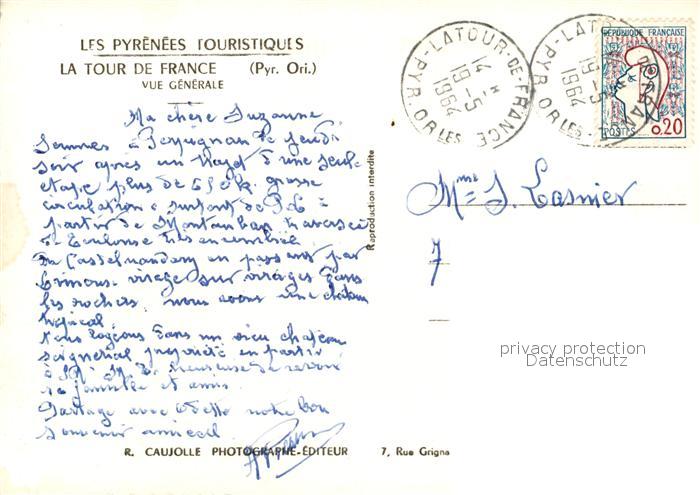 LES PYRÉNÉES TOURISTIQUES
LA TOUR DE FRANCE (Pyr. Ori.)
VUE GÉNÉRALE
Ma chère Suzanne
Sommes à Perpignan le jeudi
soir après un d'une seule
étape plus de grosse
circulation surtout de
partir de Montauban traversée
de Toulouse très
Castelnaudary en passant par
virage sur virages dans
les rochers. nous avons une chaleur
tropical.
Nous logeons dans un vieux chateau
seigneurial propriété en partie
à Mr heureuse de revoir
sa famille et amis.
Partage avec Odette notre bon
souvenir amical
R. CAUJOLLE PHOTOGRAPHE-ÉDITEUR
7, Rue Grigna
Reproduction interdite
LATOUR-DE-FRANCE
PYR. ORLES
14 H
19-5
1964
LATOUR-DE-FRANCE
PYR. ORLES
19-5
1964
RÉPUBLIQUE FRANÇAISE
POSTES 0,20
Mme S. Lasnier
7
privacy protection
Datenschutz